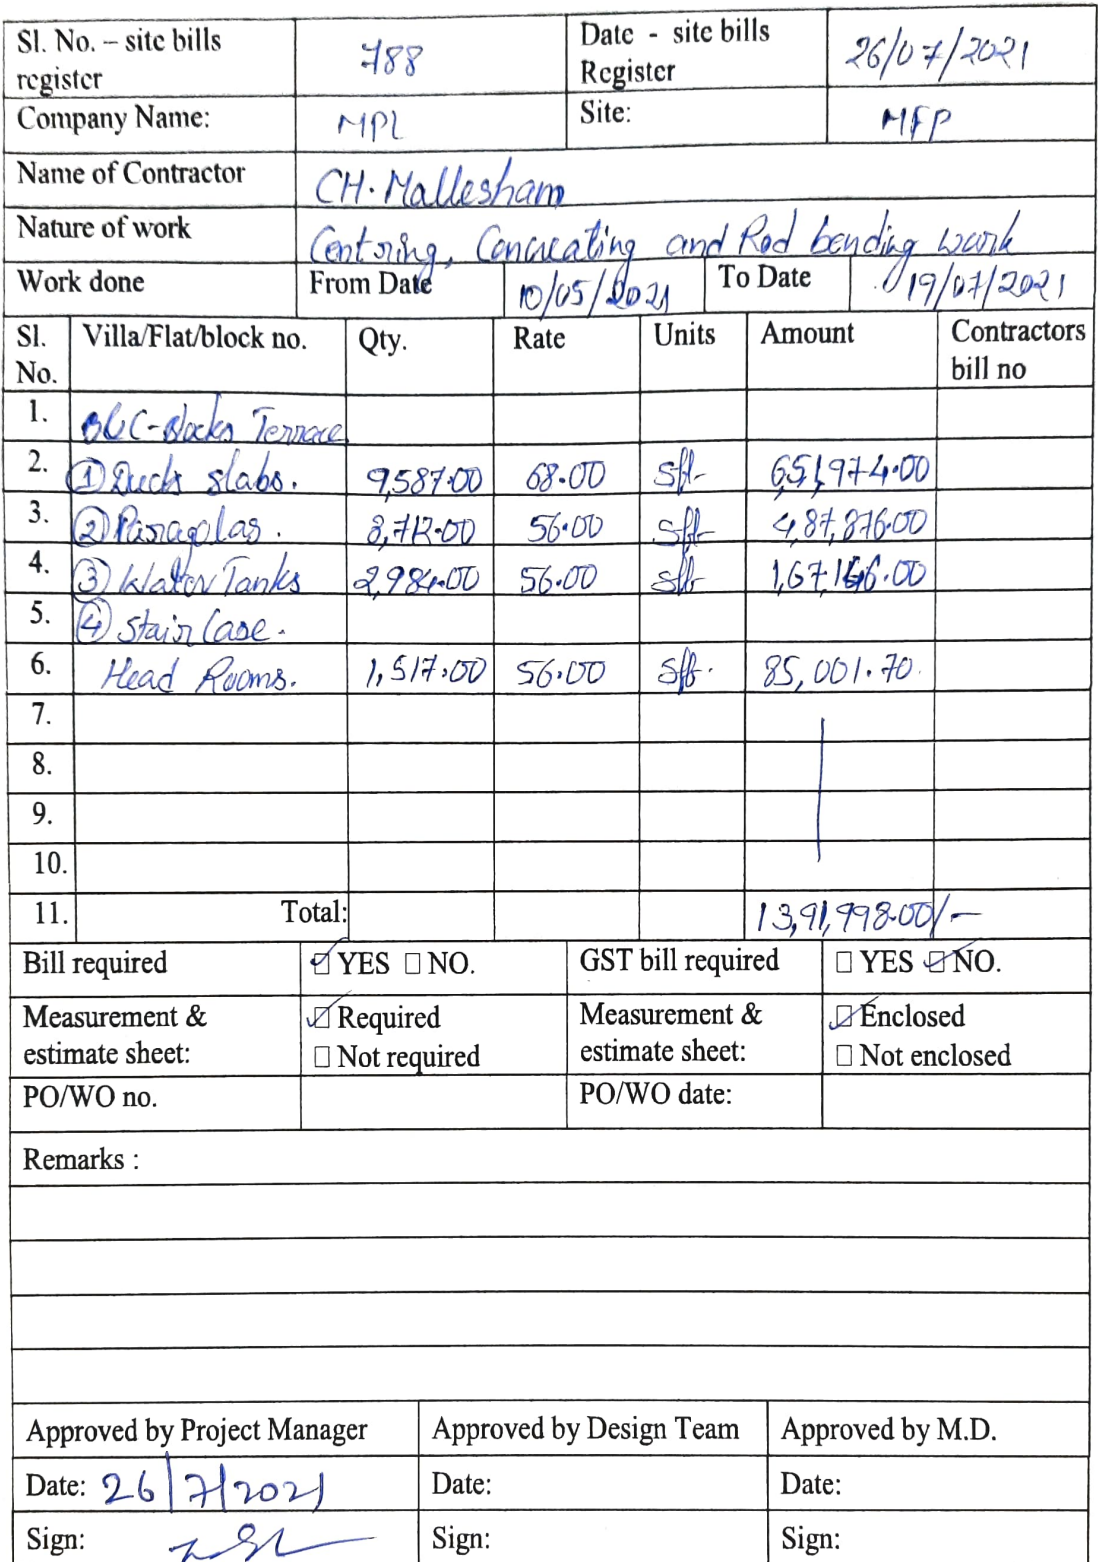 Sl. No. – site bills register 788 Date - site bills Register 26/07/2021
Company Name: MPL Site: MFP
Name of Contractor CH. Mallesham
Nature of work Centring, Concreating and Rod bending work
Work done From Date 10/05/2021 To Date 19/07/2021
Sl. No. Villa/Flat/block no. Qty. Rate Units Amount Contractors bill no
1. B&C-Blocks Terrace
2. ① Ducts slabs. 9,587.00 68.00 sft 6,51,974.00
3. ② Paragolas. 8,712.00 56.00 sft 4,87,876.00
4. ③ Water Tanks 2,984.00 56.00 sft 1,67,146.00
5. ④ Stair Case.
6. Head Rooms. 1,517.00 56.00 sft. 85,001.70
7.
8.
9.
10.
11. Total: 13,91,998.00/-
Bill required ☑ YES ☐ NO. GST bill required ☐ YES ☑ NO.
Measurement & estimate sheet: ☑ Required ☐ Not required Measurement & estimate sheet: ☑ Enclosed ☐ Not enclosed
PO/WO no. PO/WO date:
Remarks :
Approved by Project Manager Approved by Design Team Approved by M.D.
Date: 26/7/2021 Date: Date:
Sign: Sign: Sign: